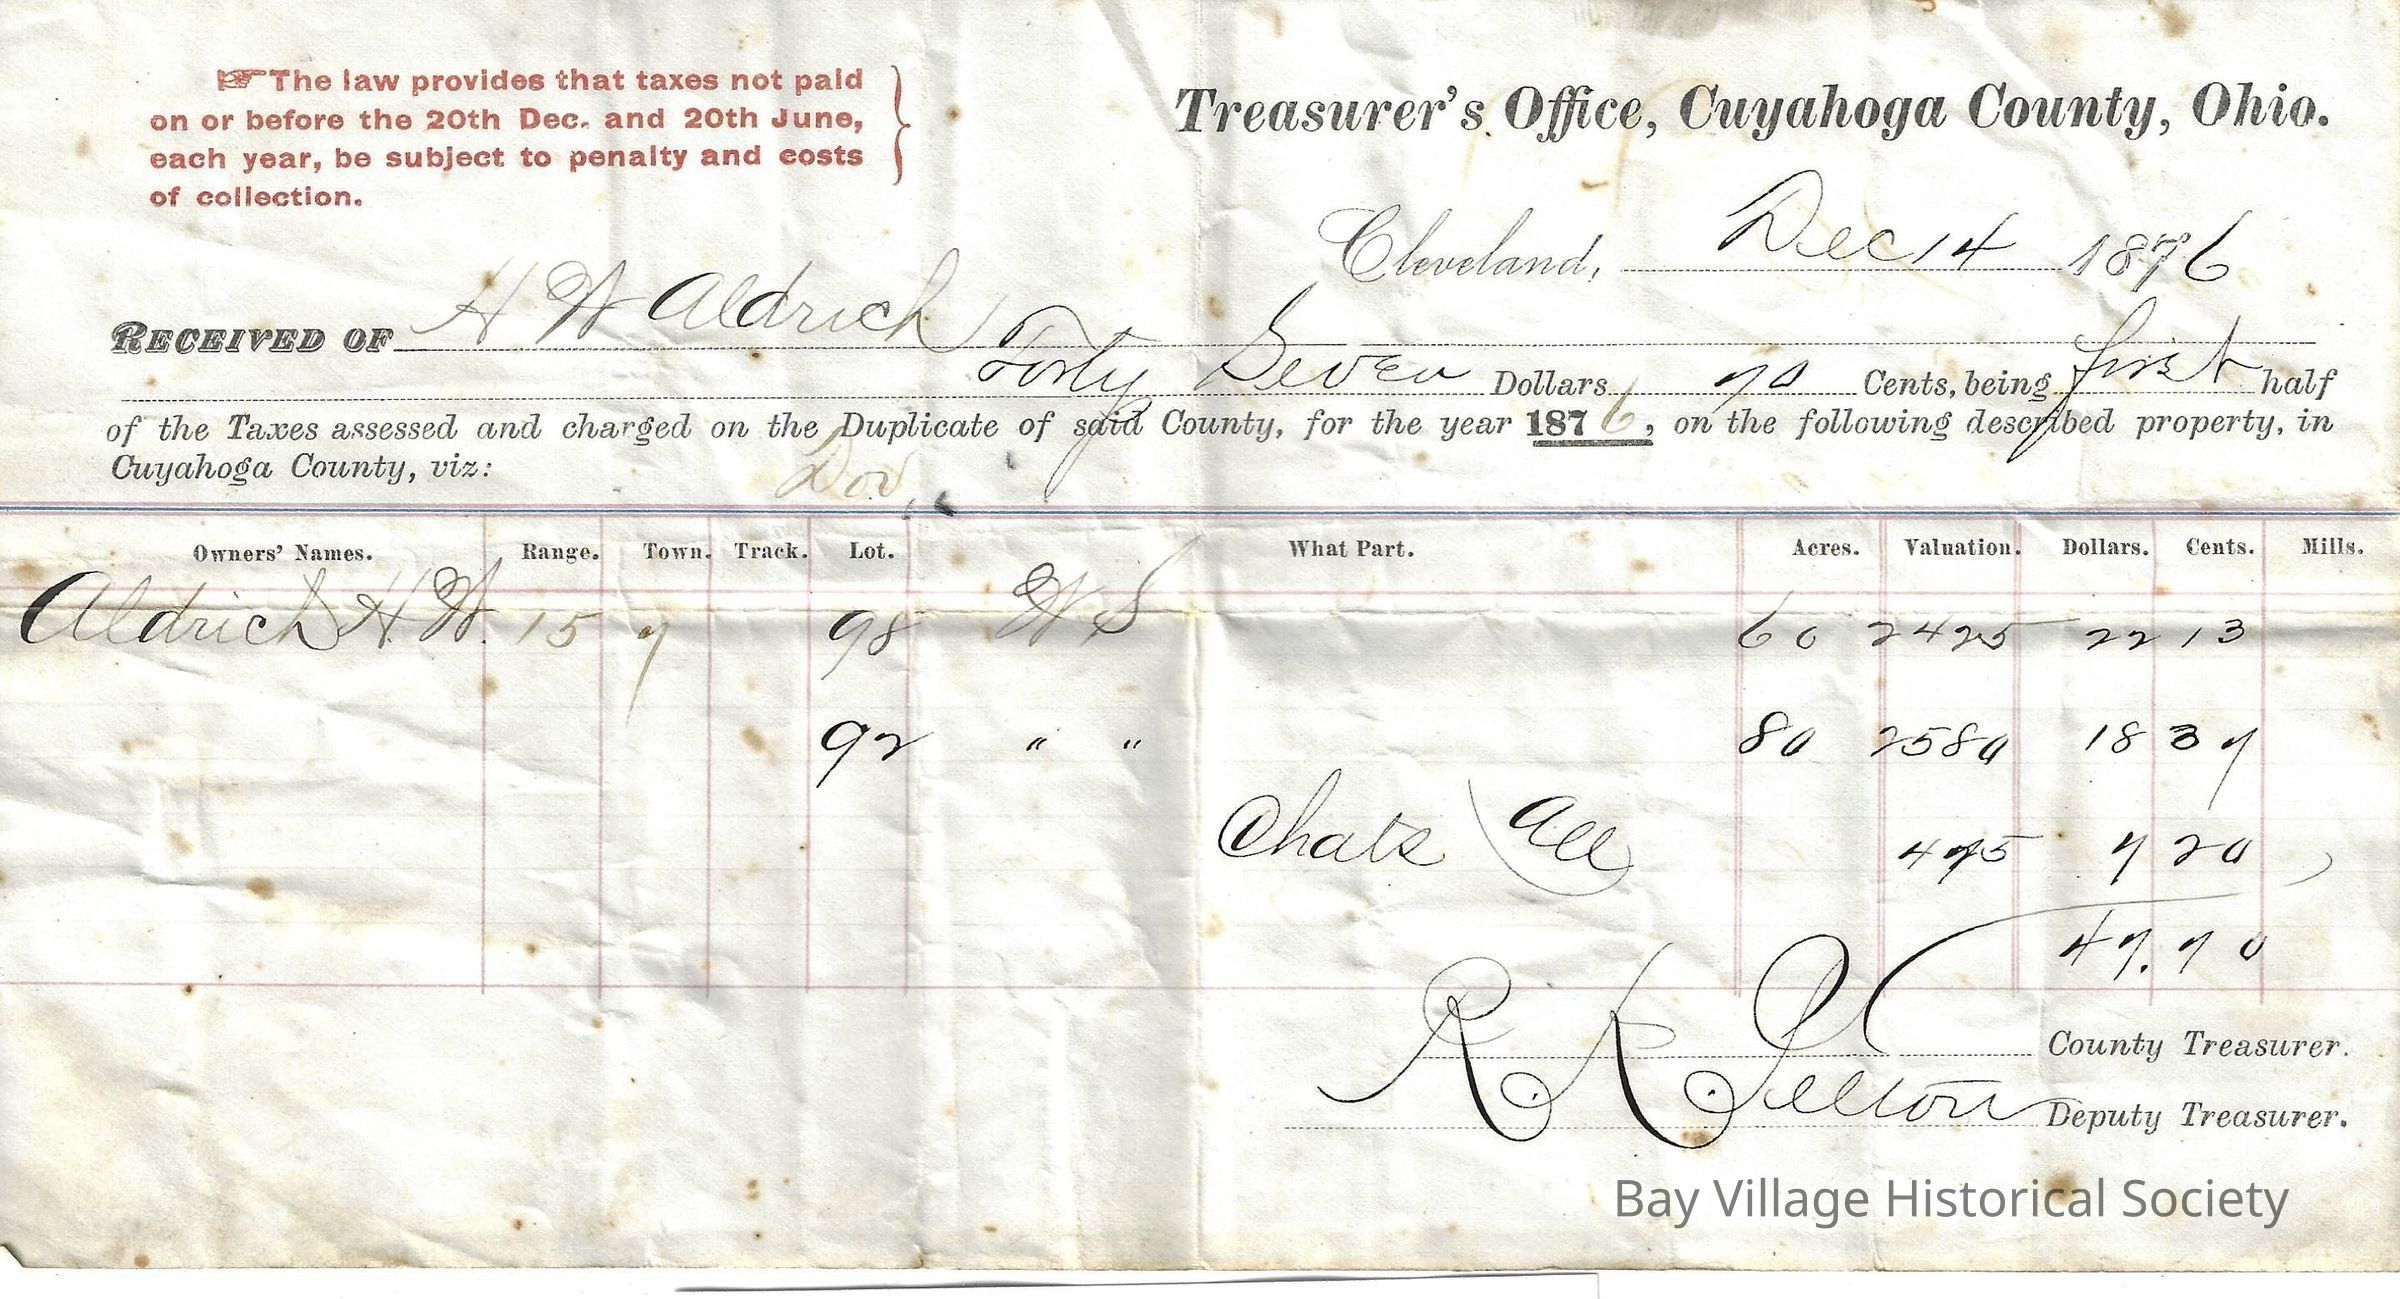 ☞The law provides that taxes not paid
on or before the 20th Dec. and 20th June,
each year, be subject to penalty and costs
of collection.
Treasurer's Office, Cuyahoga County, Ohio.
Cleveland, Dec 14 1876
RECEIVED OF H W Aldrich
Forty Seven Dollars 70 Cents, being first half
of the Taxes assessed and charged on the Duplicate of said County, for the year 1876, on the following described property, in
Cuyahoga County, viz:
Dov
Owners' Names. Range. Town. Track. Lot. What Part. Acres. Valuation. Dollars. Cents. Mills.
Aldrich H W. 15 7 98 W S 60 2425 22 13
92 " " 80 2580 18 37
Chats All 475 7 20
47.70
R R Pelton
County Treasurer.
Deputy Treasurer.
Bay Village Historical Society